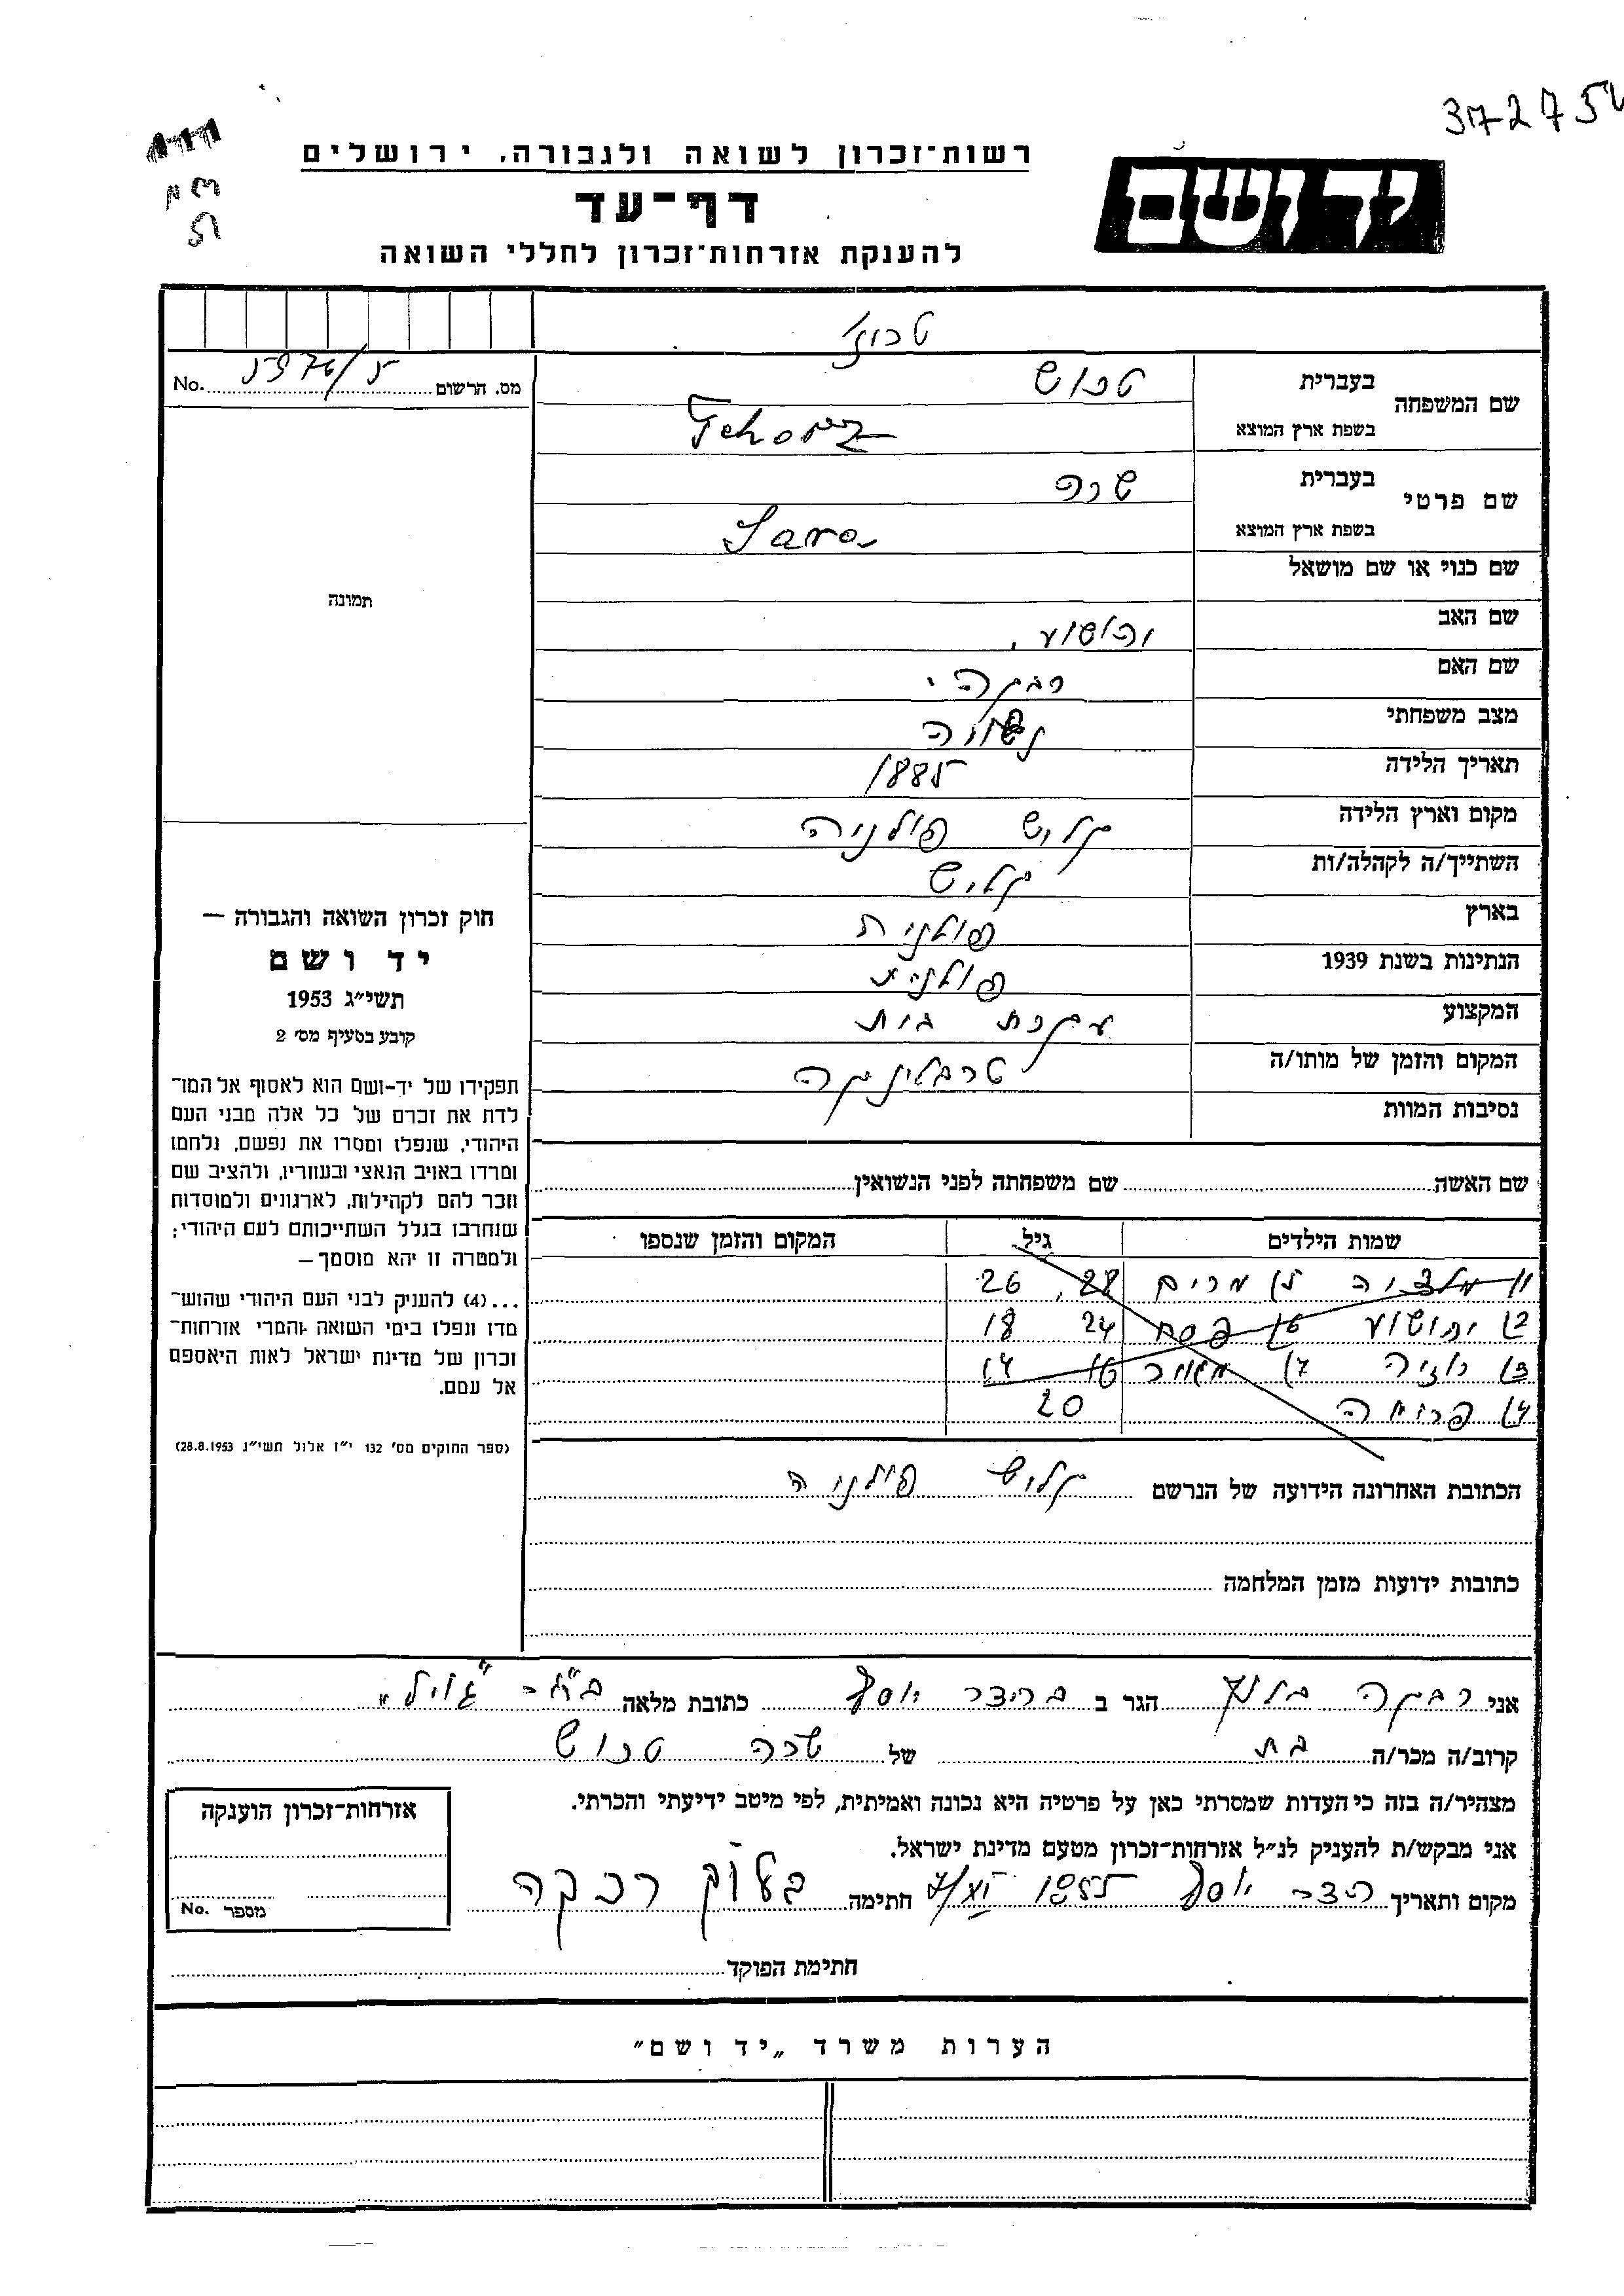 372754
רשות־זכרון לשואה ולגבורה, ירושלים
יד ושם
דף־עד
להענקת אזרחות־זכרון לחללי השואה
No. 5976/5 מס. הרשום
שם המשפחה
בעברית טכוש
בשפת ארץ המוצא Tchorz
שם פרטי
בעברית שרה
בשפת ארץ המוצא Sara
שם כנוי או שם מושאל
שם האב יהושוע
שם האם רבקה
מצב משפחתי נשואה
תאריך הלידה 1885
מקום וארץ הלידה קליש פולניה
השתייך/ה לקהלה/ות קליש
בארץ פולנית
הנתינות בשנת 1939 פולנית
המקצוע עקרת בית
המקום והזמן של מותו/ה טרבלינקה
נסיבות המוות
שם האשה שם משפחתה לפני הנשואין
שמות הילדים גיל המקום והזמן שנספו
5) מרים 28, 26
2) יהושוע 6) פסח 24 18
3) רוזיה 7) 16 14
4) 20
הכתובת האחרונה הידועה של הנרשם קליש פולניה
כתובות ידועות מזמן המלחמה
תמונה
חוק זכרון השואה והגבורה —
יד ושם
תשי״ג 1953
קובע בסעיף מס׳ 2
תפקידו של יד-ושם הוא לאסוף אל המו־
לדת את זכרם של כל אלה מבני העם
היהודי, שנפלו ומסרו את נפשם, נלחמו
ומרדו באויב הנאצי ובעוזריו, ולהציב שם
וזכר להם לקהילות, לארגונים ולמוסדות
שנחרבו בגלל השתייכותם לעם היהודי;
ולמטרה זו יהא מוסמך —
...(4) להעניק לבני העם היהודי שהוש־
מדו ונפלו בימי השואה והמרי אזרחות־
זכרון של מדינת ישראל לאות היאספם
אל עמם.
(ספר החוקים מס׳ 132 י״ז אלול תשי״ג 28.8.1953)
אני רבקה הגר ב ביצר יוסף כתובת מלאה
קרוב/ה מכר/ה בת של שרה טכוש
מצהיר/ה בזה כי העדות שמסרתי כאן על פרטיה היא נכונה ואמיתית, לפי מיטב ידיעתי והכרתי.
אני מבקש/ת להעניק לנ״ל אזרחות־זכרון מטעם מדינת ישראל.
מקום ותאריך ביצר יוסף 1955 חתימה רבקה
חתימת הפוקד
אזרחות־זכרון הוענקה
No. מספר
הערות משרד „יד ושם״